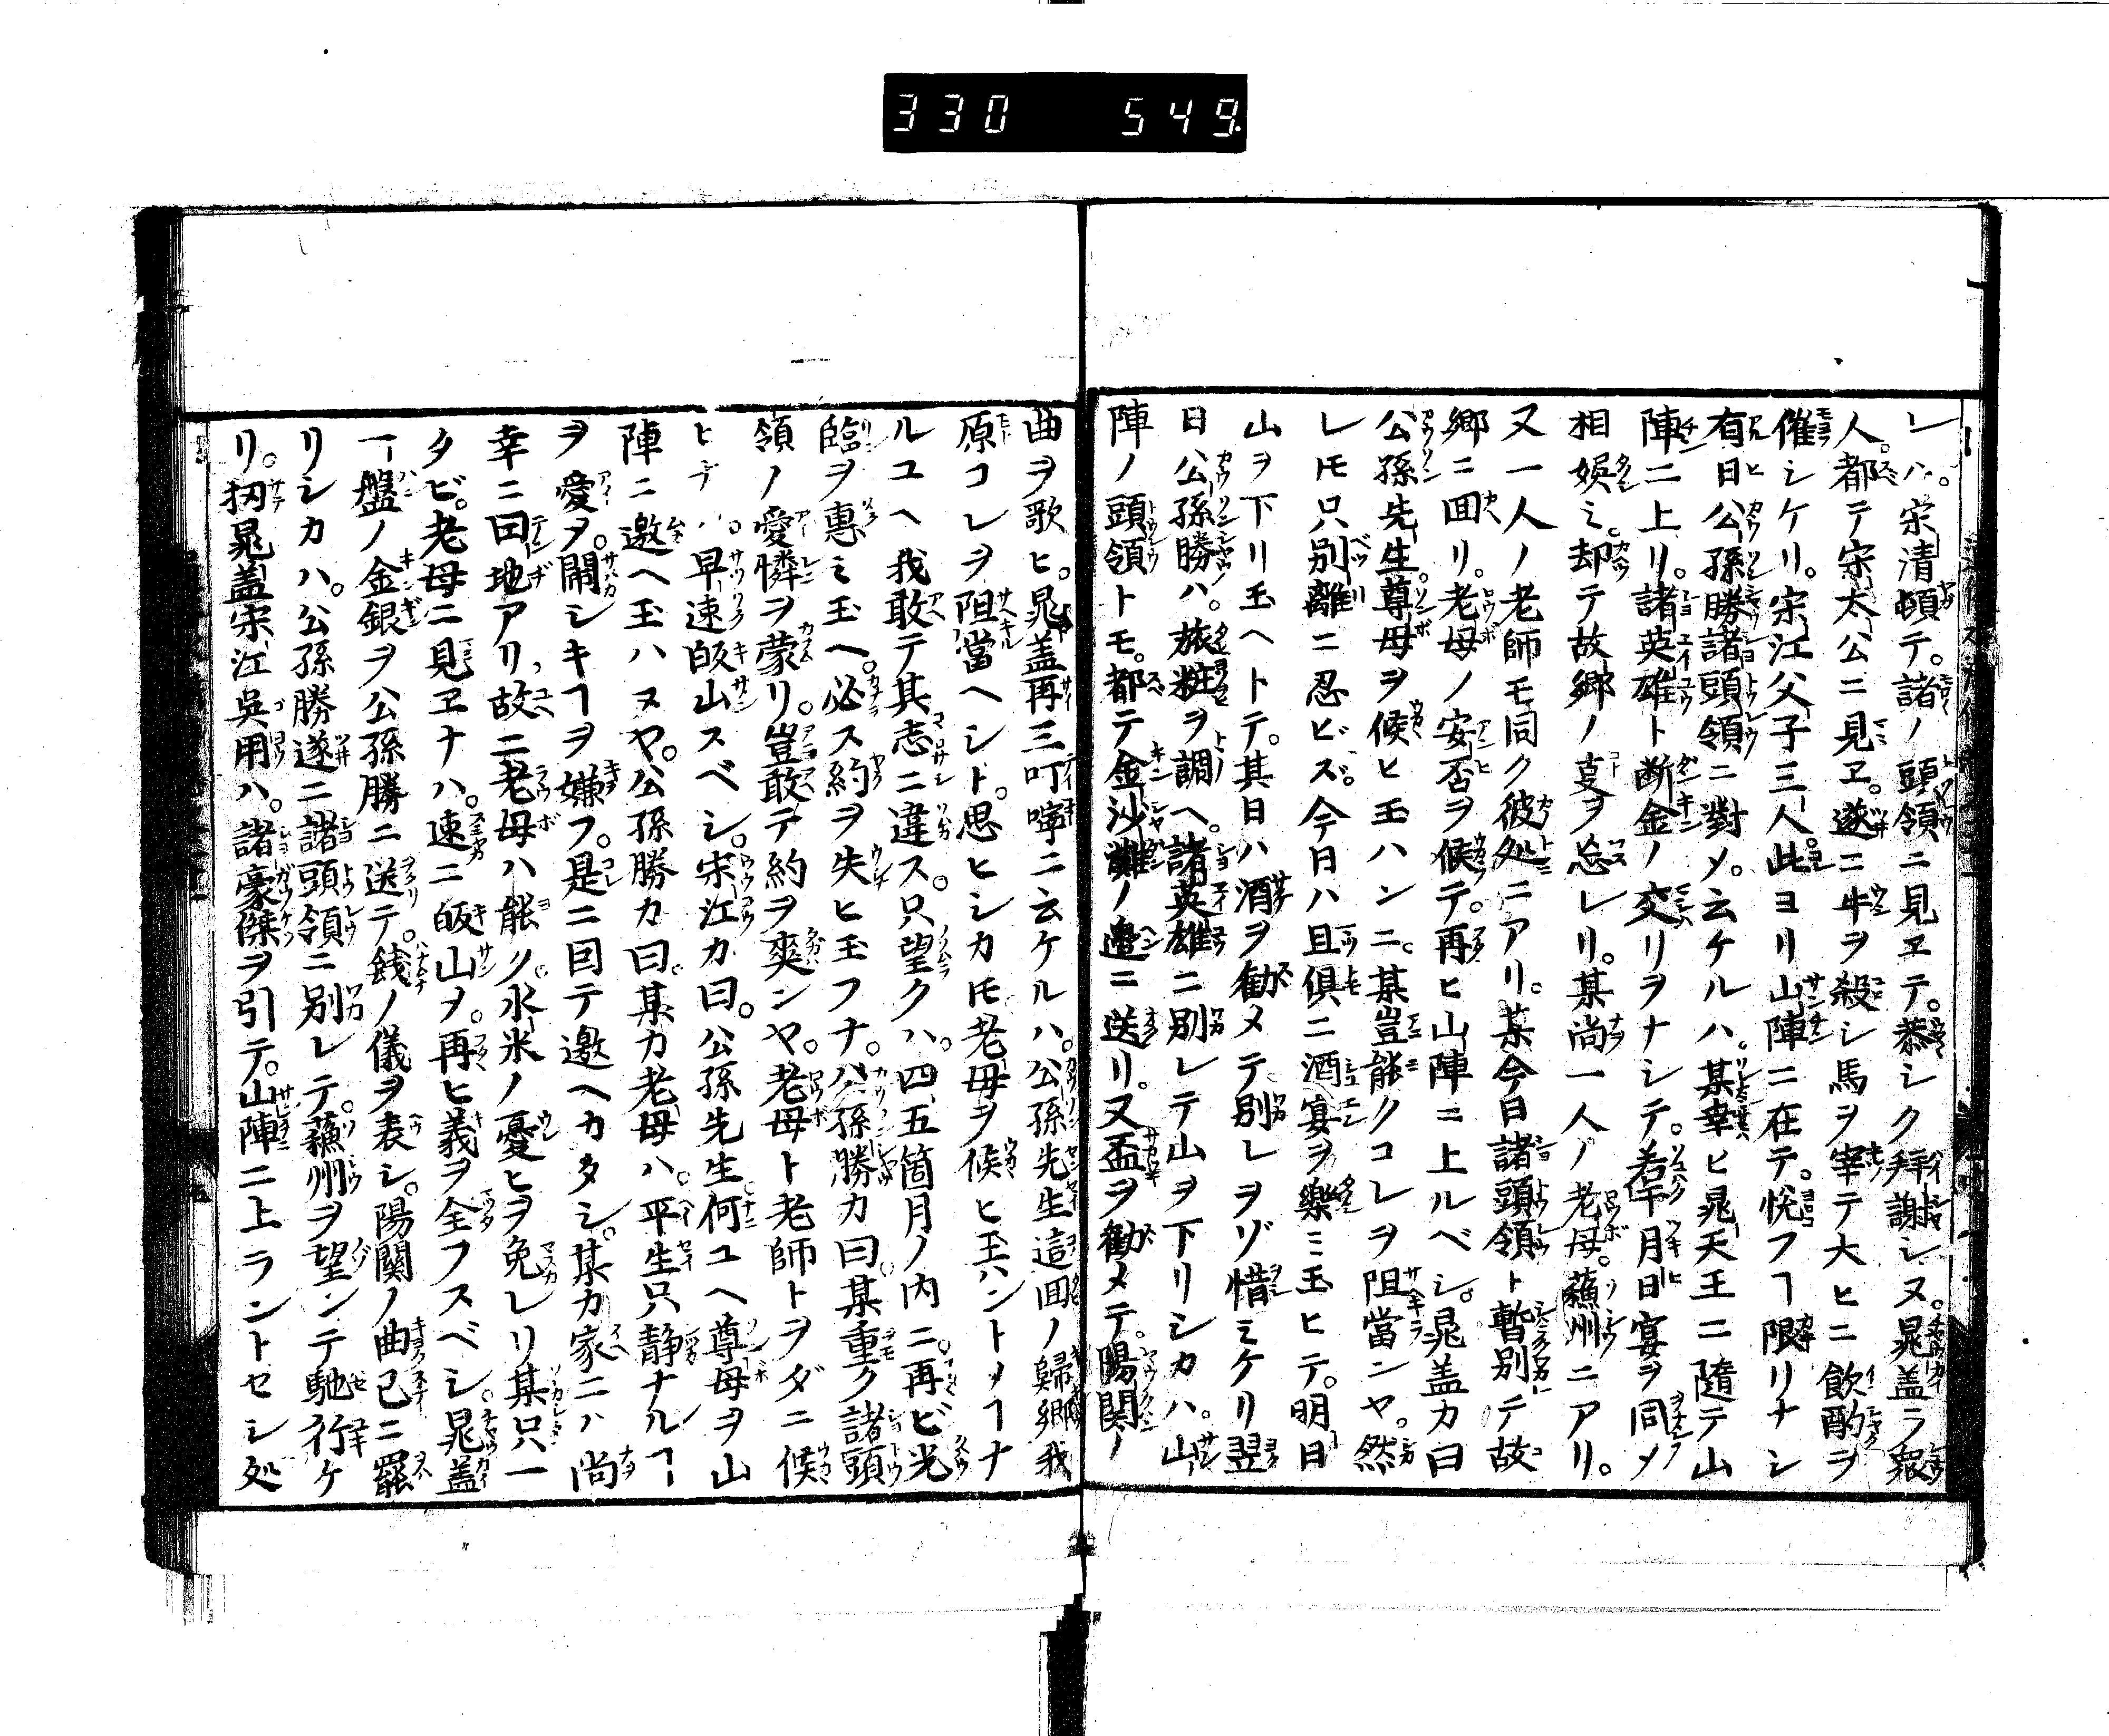 330 549.
レハ。宋清頓テ。諸ノ頭領ニ見ヱテ。恭シク拜謝レヌ。晁盖ラ衆
人。都テ宋太公ニ見ヱ。遂ニ牛ヲ殺シ馬ヲ宰テ大ヒニ飲酌ヲ
催シケリ。宋江父子三人。此ヨリ山陣ニ在テ。悅フヿ限リナシ
有日公孫勝諸頭領ニ對メ。云ケルハ。某幸ヒ晁天王ニ隨テ山
陣ニ上リ。諸英雄ト断金ノ交リヲナシテ。若干月日宴ヲ同メ
相娯ミ。却テ故郷ノ叓ヲ忘レリ。某尚一人ノ老母。蘓州ニアリ。
又一人ノ老師モ同ク彼処ニアリ。某今日諸頭領ト暫別テ故
郷ニ囬リ。老母ノ安否ヲ候テ。再ヒ山陣ニ上ルベシ。晁盖カ曰
公孫先生。尊母ヲ候ヒ玉ハンニ。某豈能クコレヲ阻當ンヤ。然
レ𪜈只別離ニ忍ビズ。今日ハ且倶ニ酒宴ヲ樂ミ玉ヒテ。明日
山ヲ下リ玉ヘトテ。其日ハ酒ヲ勧メテ別レヲゾ惜ミケリ翌
日公孫勝ハ。旅粧ヲ調ヘ。諸英雄ニ別レテ山ヲ下リシカハ。山
陣ノ頭領トモ。都テ金沙難ノ邉ニ送リ。又盃ヲ勧メテ。陽関ノ
曲ヲ歌ヒ。晁盖再三叮嚀ニ云ケルハ。公孫先生這囬ノ歸郷我
原コレヲ阻當ヘシト。思ヒシカ𪜈老母ヲ候ヒ玉ハントメヿナ
ルユヘ我敢テ其志ニ違ス。只望クハ。四五箇月ノ内ニ。再ビ光
臨ヲ惠ミ玉ヘ。必ス約ヲ失ヒ玉フナ。公孫勝カ曰。某重ク諸頭
領ノ愛憐ヲ蒙リ。豈敢テ約ヲ爽ンヤ。老母ト老師トヲダニ候
ヒナハ。早速皈山スベシ。宋江カ曰。公孫先生何ユヘ尊母ヲ山
陣ニ邀ヘ玉ハヌヤ。公孫勝カ曰。某カ老母ハ。平生只静ナルヿ
ヲ愛ヲ。閙シキヿヲ嫌フ。是ニ囙テ邀ヘカタシ。某カ家ニハ尚
幸ニ田地アリ。故ニ老母ハ能ク。氷米ノ憂ヒヲ免レリ某只一
タビ。老母ニ見ヱナハ。速ニ皈山ヲ。再ヒ義ヲ全フスベシ。晁盖
一盤ノ金銀ヲ公孫勝ニ送テ。餞ノ儀ヲ表シ。陽関ノ曲已ニ罷
リシカハ。公孫勝遂ニ諸頭領ニ別レテ。蘓州ヲ望ンテ馳行ケ
リ。扨晁盖宋江吳用ハ。諸豪傑ヲ引テ。山陣ニ上ラントセシ処